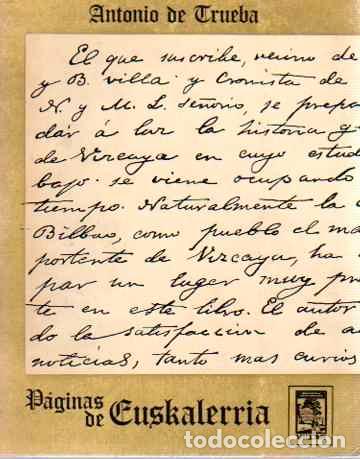 Antonio de Trueba
El que suscribe, vecino de
y B. villa y Cronista de
N. y M. L. señorio, se prepa
dár á luz la historia g
de Vizcaya en cuyo estud
bajo se viene ocupando
tiempo. Naturalmente la
Bilbao, como pueblo el ma
portente de Vizcaya, ha
par un lugar muy pre
te en este libro. El autor
do la satisfaccion de a
noticias, tanto mas curios
Páginas
de Euskalerria
todocoleccion.net